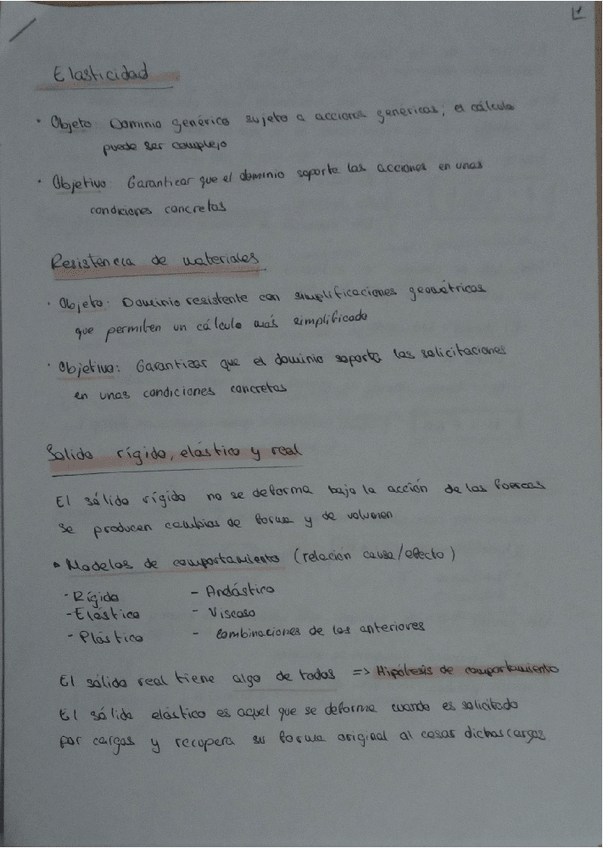 1
Elasticidad
· Objeto: Dominio genérico sujeto a acciones genericas; el cálculo
puede ser complejo
· Objetivo: Garantizar que el dominio soporte las acciones en unas
condiciones concretas
Resistencia de materiales
· Objeto: Dominio resistente con simplificaciones geométricas
que permiten un cálculo más simplificado
· Objetivo: Garantizar que el dominio soporte las solicitaciones
en unas condiciones concretas
Solido rígido, elástico y real
El sólido rígido no se deforma bajo la acción de las fuerzas
Se producen cambios de forma y de volumen
• Modelos de comportamiento (relación causa/efecto)
- Rígido - Andástico
- Elástico - Viscoso
- Plástico - Combinaciones de los anteriores
El sólido real tiene algo de todos => Hipótesis de comportamiento
El sólido elástico es aquel que se deforma cuando es solicitado
por cargas y recupera su forma original al cesar dichas cargas